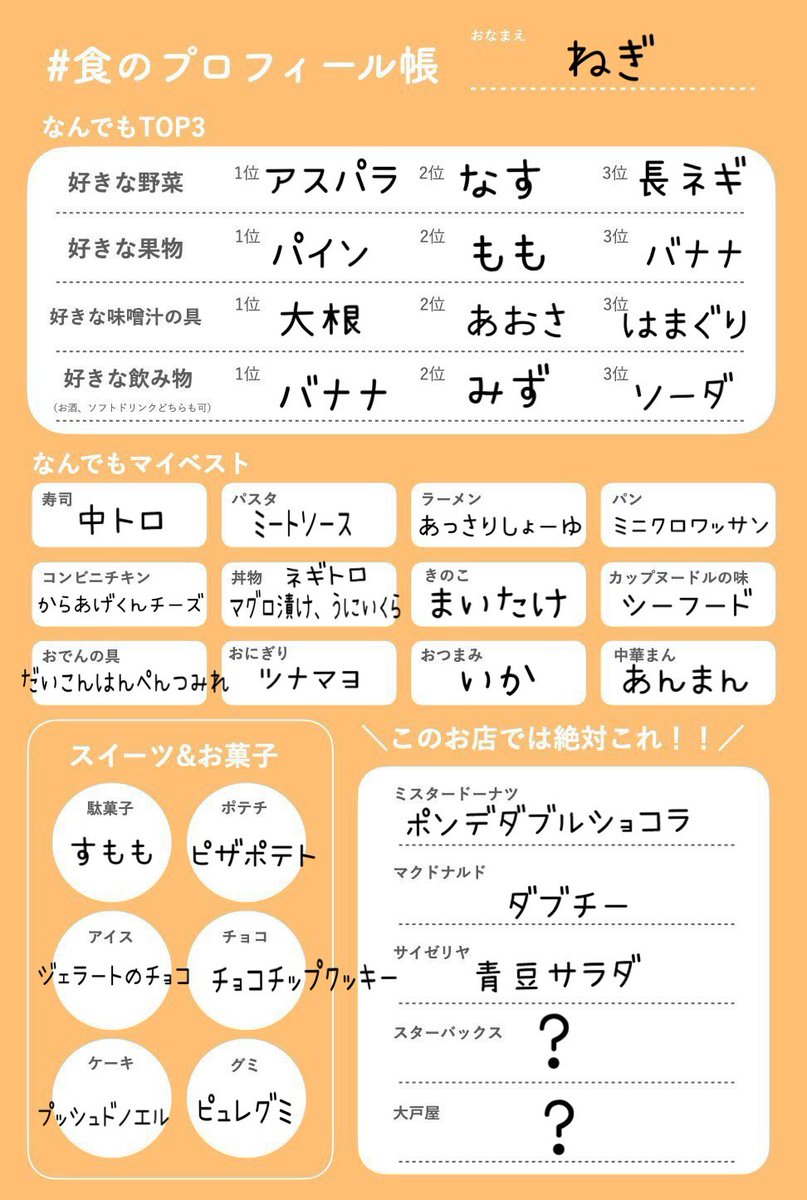 おなまえ
#食のプロフィール帳 ねぎ
なんでもTOP3
好きな野菜 1位 アスパラ 2位 なす 3位 長ネギ
好きな果物 1位 パイン 2位 もも 3位 バナナ
好きな味噌汁の具 1位 大根 2位 あおさ 3位 はまぐり
好きな飲み物 1位 バナナ 2位 みず 3位 ソーダ
(お酒、ソフトドリンクどちらも可)
なんでもマイベスト
寿司 パスタ ラーメン パン
中トロ ミートソース あっさりしょーゆ ミニクロワッサン
コンビニチキン 丼物 ネギトロ きのこ カップヌードルの味
からあげくんチーズ マグロ漬け、うにいくら まいたけ シーフード
おでんの具 おにぎり おつまみ 中華まん
だいこんはんぺんつみれ ツナマヨ いか あんまん
スイーツ&お菓子
駄菓子 ポテチ
すもも ピザポテト
アイス チョコ
ジェラートのチョコ チョコチップクッキー
ケーキ グミ
プッシュドノエル ピュレグミ
＼このお店では絶対これ！！／
ミスタードーナツ
ポンデダブルショコラ
マクドナルド
ダブチー
サイゼリヤ
青豆サラダ
スターバックス ?
大戸屋 ?